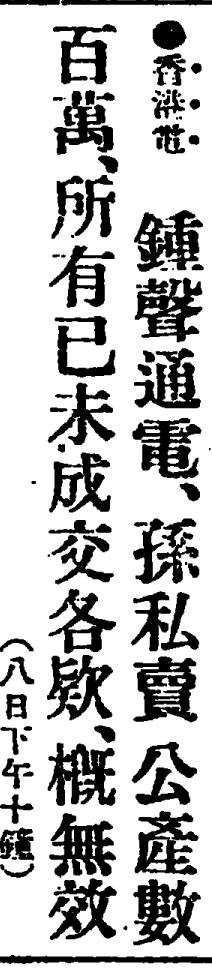 ●香港電　鍾聲通電、孫私賣公產數
百萬、所有已未成交各欵、概無效
（八日下午十鐘）